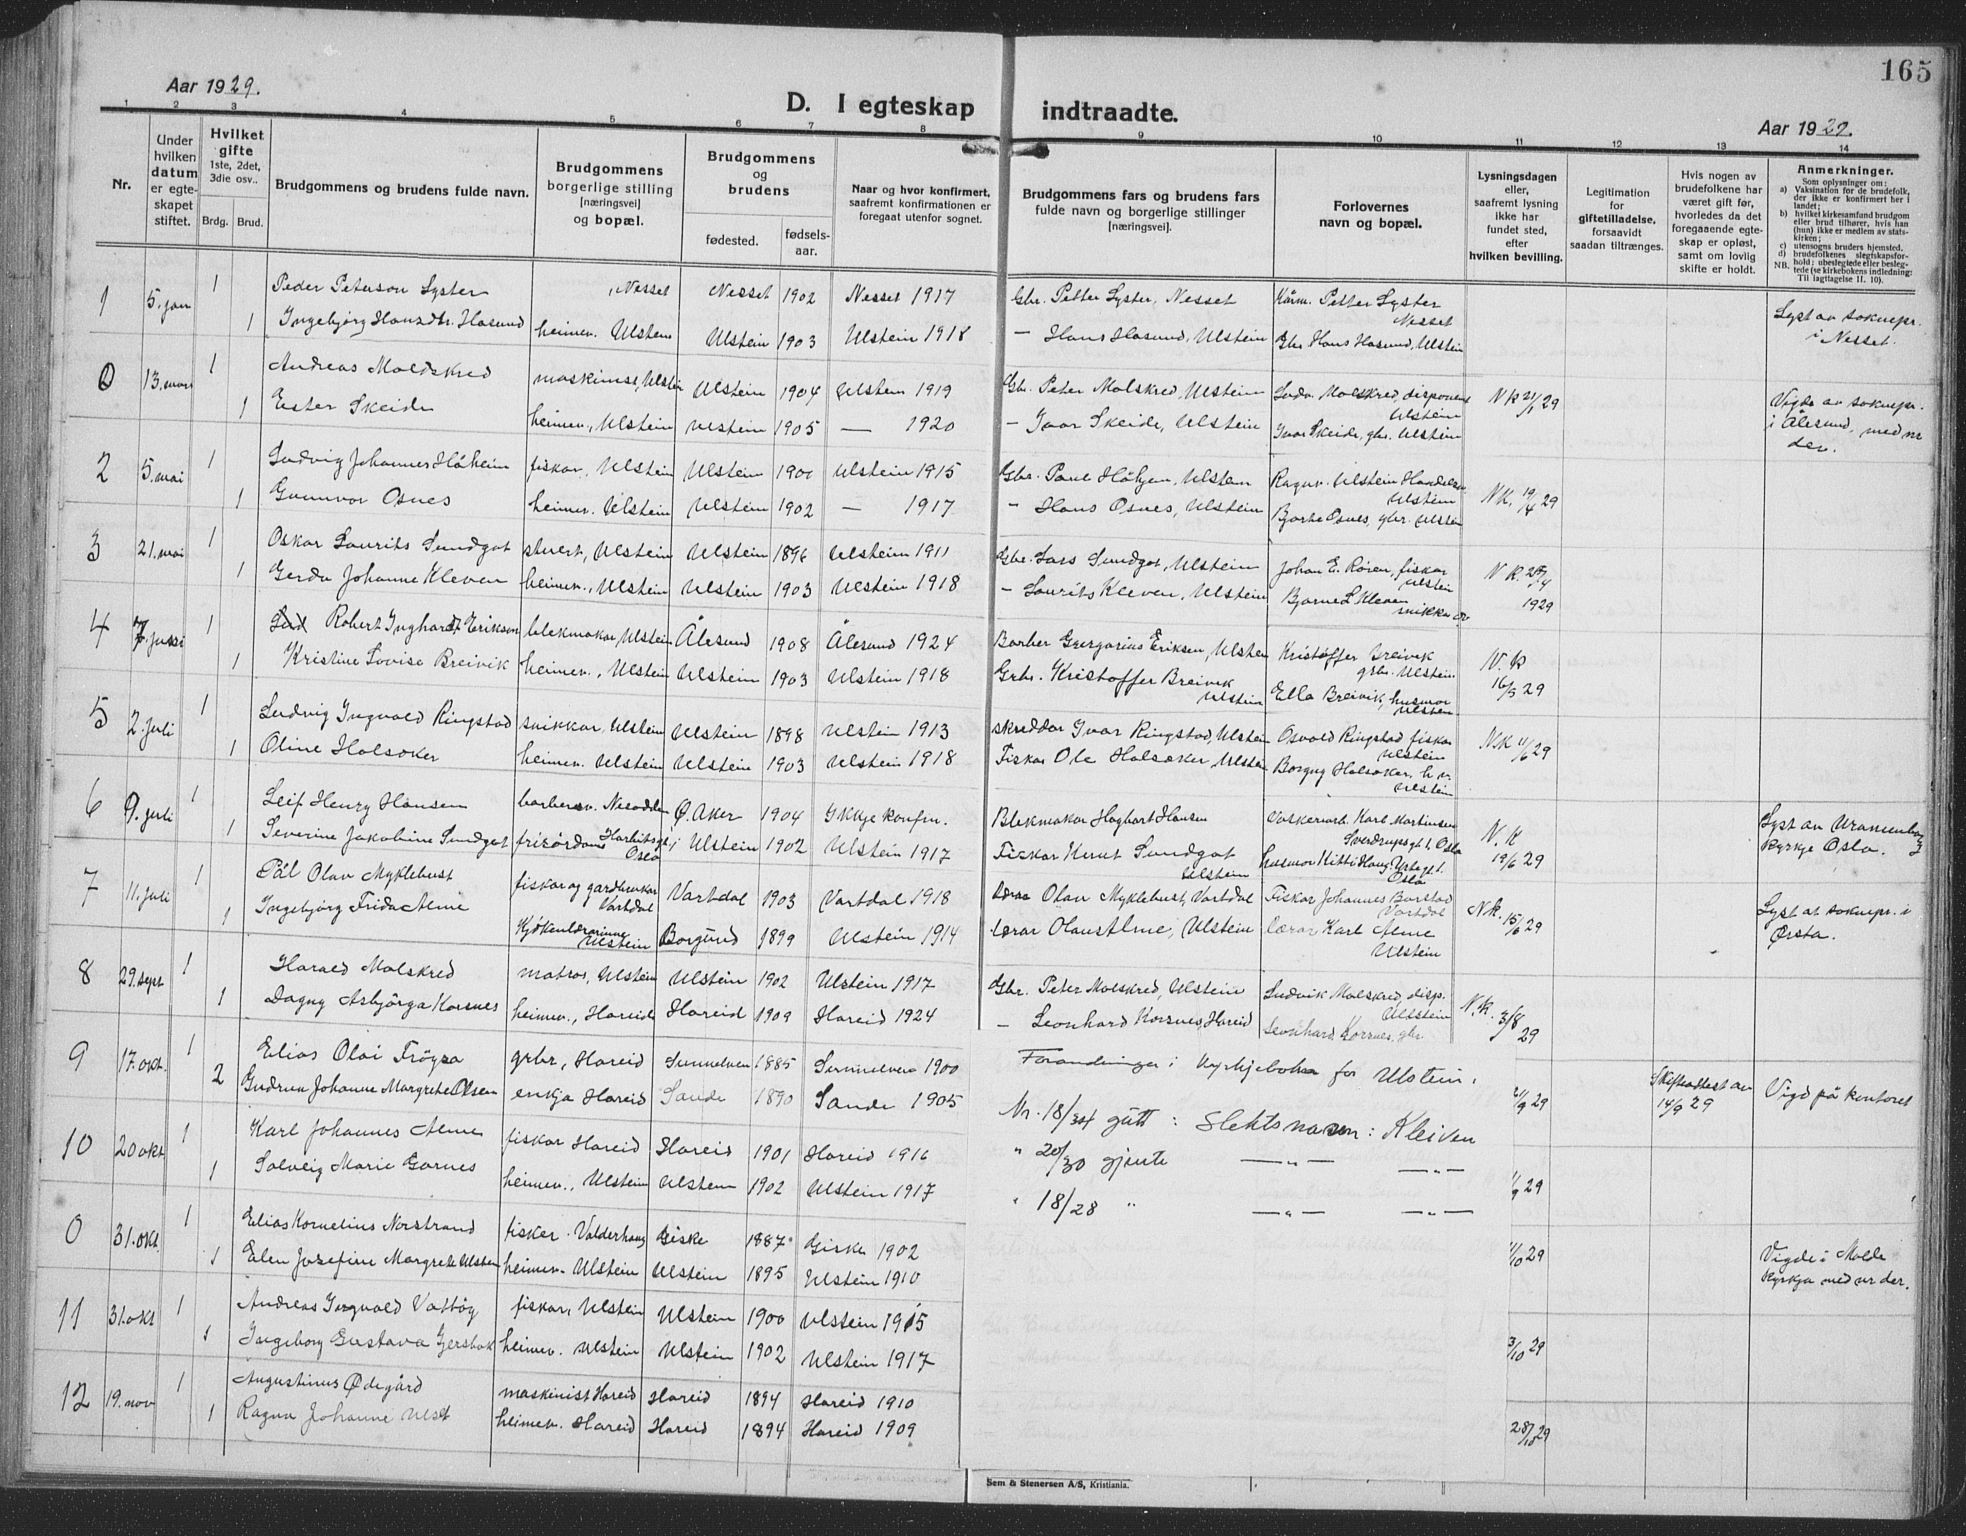 165
Aar 1929.
D. I egteskap indtraadte.
Aar 1929.
1 2 3 4 5 6 7 8 9 10 11 12 13 14
Nr.
Under hvilken datum er egteskapet stiftet.
Hvilket gifte 1ste, 2det, 3die osv..
Brdg. Brud.
Brudgommens og brudens fulde navn.
Brudgommens borgerlige stilling [næringsvei] og bopæl.
Brudgommens og brudens
fødested. fødselsaar.
Naar og hvor konfirmert, saafremt konfirmationen er foregaat utenfor sognet.
Brudgommens fars og brudens fars fulde navn og borgerlige stillinger [næringsvei].
Forlovernes navn og bopæl.
Lysningsdagen eller, saafremt lysning ikke har fundet sted, efter hvilken bevilling.
Legitimation for giftetilladelse, forsaavidt saadan tiltrænges.
Hvis nogen av brudefolkene har været gift før, hvorledes da det foregaaende egteskap er opløst, samt om lovlig skifte er holdt.
Anmerkninger.
Som oplysninger om:
a) Vaksination for de brudefolk, der ikke er konfirmert her i landet;
b) hvilket kirkesamfund brudgom eller brud tilhører, hvis han (hun) ikke er medlem av statskirken;
c) utensogns bruders hjemsted.
d) brudefolkenes slegtskapsforhold; ubeslegtede eller beslegtede (se kirkebokens indledning:
NB. Til Iagttagelse II. 10).
1 5. jan 1 Peder Peterson Lyster , Nesset Nesset 1902 Nesset 1917 Gbr. Petter Lyster, Nesset Petter Lyster Nesset Lyst av sokнepr. i Nesset.
1 Ingebjørg Hansdtr. Hasund heimev. Ulstein Ulstein 1903 Ulstein 1918 — Hans Hasund, Ulstein Gbr Hans Hasund, Ulstein
0 13. mars 1 Andreas Moldskred maskinist, Ulstein Ulstein 1904 Ulstein 1919 Gbr. Peter Molskred, Ulstein Ludv. Molskred, disponent Ulstein NK 21/1 29 Vigde av soknepr. i Ålesund, med nr der.
1 Ester Skeide heimev., Ulstein Ulstein 1905 — 1920 — Ivar Skeide, Ulstein Ivar Skeide, gbr. Ulstein
2 5. mai 1 Ludvig Johannes Håheim fiskar, Ulstein Ulstein 1900 Ulstein 1915 Gbr. Paul Ulstein Ragnv. Ulstein Ulstein NK. 19/4 29
1 Gunnvor Osnes heimev. Ulstein Ulstein 1902 — 1917 — Hans Osnes, Ulstein Bjarne Osnes, gbr. Ulstein
3 21. mai 1 Oskar Laurits Sundgot stuert, Ulstein Ulstein 1896 Ulstein 1911 Gbr. Lars Sundgot, Ulstein Johan E. Røren, fiskar Ulstein N K. 1929
1 Gerda Johanne Kleven heimev., Ulstein Ulstein 1903 Ulstein 1918 — Laurits Kleven, Ulstein Bjarne L Kleven
4 7. 1 Robert Inghardt Eriksen blekmakar, Ulstein Ålesund 1908 Ålesund 1924 Barber Eriksen, Ulstein Kristoffer Breivik gbr. Ulstein N. K 16/5 29
1 Kristine Lovise Breivik heimev., Ulstein Ulstein 1903 Ulstein 1918 Gbr. Kristoffer Breivik Ulstein Ella Breivik, husmor Ulstein
5 2. juli 1 Ludvig Ingvald Ringstad snikkar, Ulstein Ulstein 1898 Ulstein 1913 skreddar Ivar Ringstad, Ulstein Osvald Ringstad, fiskar Ulstein N.K 11/6 29
1 Oline Halsøker heimev. Ulstein Ulstein 1903 Ulstein 1918 Fiskar Ole Halsøker, Ulstein Borgny Halsøker, h.v. Ulstein
6 9. juli 1 Leif Henry Hansen barbersv. Nesodden Ø. Aker 1904 Ikkje konfm. Blekmakar Hagbart Hansen Karl Martinsen Sverdrupsgt 1, Oslo N. K 19/6 29 Lyst av Uranienborg kyrkje Oslo.
1 Severine Jakobine Sundgot frisørdame Oslo Ulstein 1902 Ulstein 1917 Fiskar Knut Sundgot Ulstein husmor Kitti Haug Oslo
7 11. juli 1 Pål Olav Myklebust fiskar og gardbrukar Vartdal Vartdal 1903 Vartdal 1918 Olav Myklebust, Vartdal Fiskar Johannes Barstad Vartdal NK. 15/6 29 Lyst at soknepr. i Ørsta.
1 Ingebjørg Frida Alme Kjøkenlærarinne Ulstein Borgund 1899 Ulstein 1914 lærar Olaus Alme, Ulstein lærar Karl Alme Ulstein
8 29. sept 1 Harald Molskred matros, Ulstein Ulstein 1902 Ulstein 1917 Gbr. Peter Molskred, Ulstein Ludvik Molskred, disp. Ulstein N.K. 3/8 29
1 Dagny Asbjørga Korsnes heimev., Hareid Hareid 1909 Hareid 1924 — Leonhard Korsnes, Hareid Leonhard Korsnes, gbr
9 17. okt. 1 Elias Olai Frøysa grbr, Hareid Sunnelven 1885 Sunnelven 1900 21/9 29 Skifteattest av 14/9 29 Vigd på kontoret
2 Gudrun Johanne Margrete Olsen enkja Hareid Sande 1890 Sande 1905
Forandringer i Kyrkjeboka for Ulstein:
Nr. 18/34 gutt: Slektsnavn: Kleiven
" 20/30 gjente —"— —"—
" 18/28 " —"— —"—
10 20 okt 1 Karl Johannes Alme fiskar Hareid Hareid 1901 Hareid 1916 1/9 29
1 Solveig Marie Garnes heimev., Ulstein Ulstein 1902 Ulstein 1917
0 31. okt 1 Elias Kornelius Norstrand fisker Valderhaug Giske 1887 Giske 1902 11/10 29 Vigde i Molde kyrkja med nr der.
1 Elen Josefine Margrete Ulstein heimev. Ulstein Ulstein 1895 Ulstein 1910
11 31. okt 1 Andreas Ingvald Vatbøg fiskar, Ulstein Ulstein 1900 Ulstein 1915 3/10 29
1 Ingeborg Gustava heimev. Ulstein Ulstein 1902 Ulstein 1917
12 19. nov 1 Augustinus Ødegård maskinist Hareid Hareid 1894 Hareid 1910 28/10 29
1 Ragna Johanne Ulset heimev. Hareid Hareid 1894 Hareid 1909
Sem & Stenersen A/S, Kristiania.